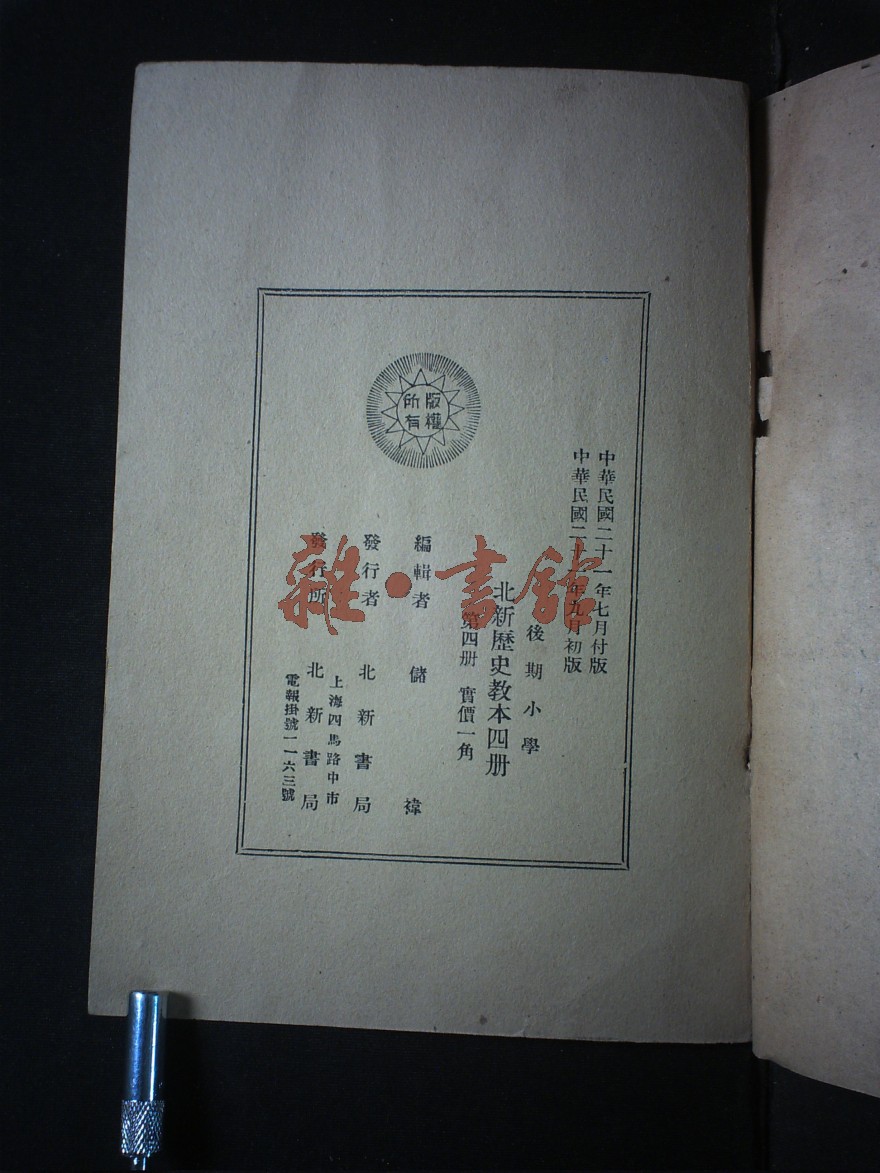 中華民國二十一年七月付版
中華民國二十一年九月初版
後期小學
北新歷史教本四册
第四册 實價一角
編輯者 儲褘
發行者 北新書局
上海四馬路中市
發行所 北新書局
電報掛號一一六三號
版權所有
雜·書館